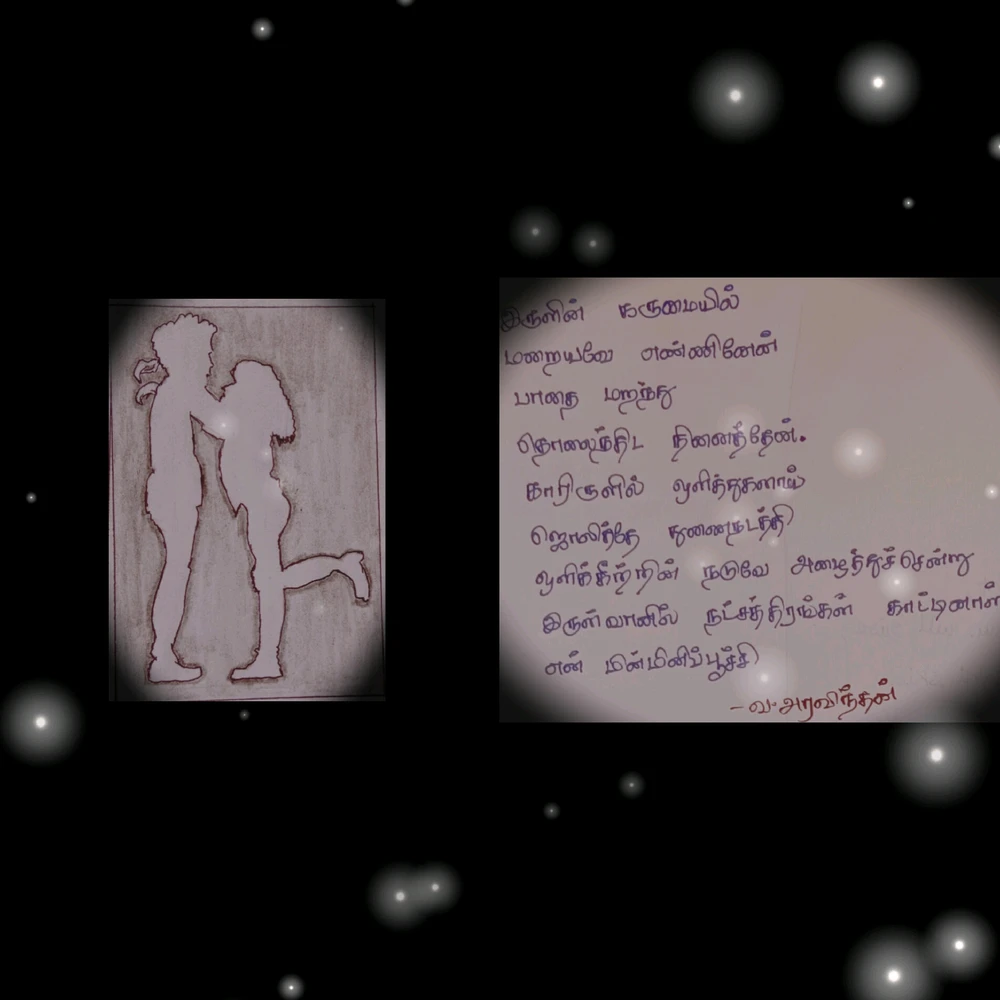 இருளின் கருமையில்
மறையவே எண்ணினேன்
பாதை மறந்து
தொலைந்திட நினைத்தேன்.
காரிருளில் ஒளித்துகளாய்
ஜொலித்தே துணைநடத்தி
ஒளிக்கீற்றின் நடுவே அழைத்துச்சென்று
இருள்வானில் நட்சத்திரங்கள் காட்டினாள்
என் மின்மினிப்பூச்சி
-வ.அரவிந்தன்